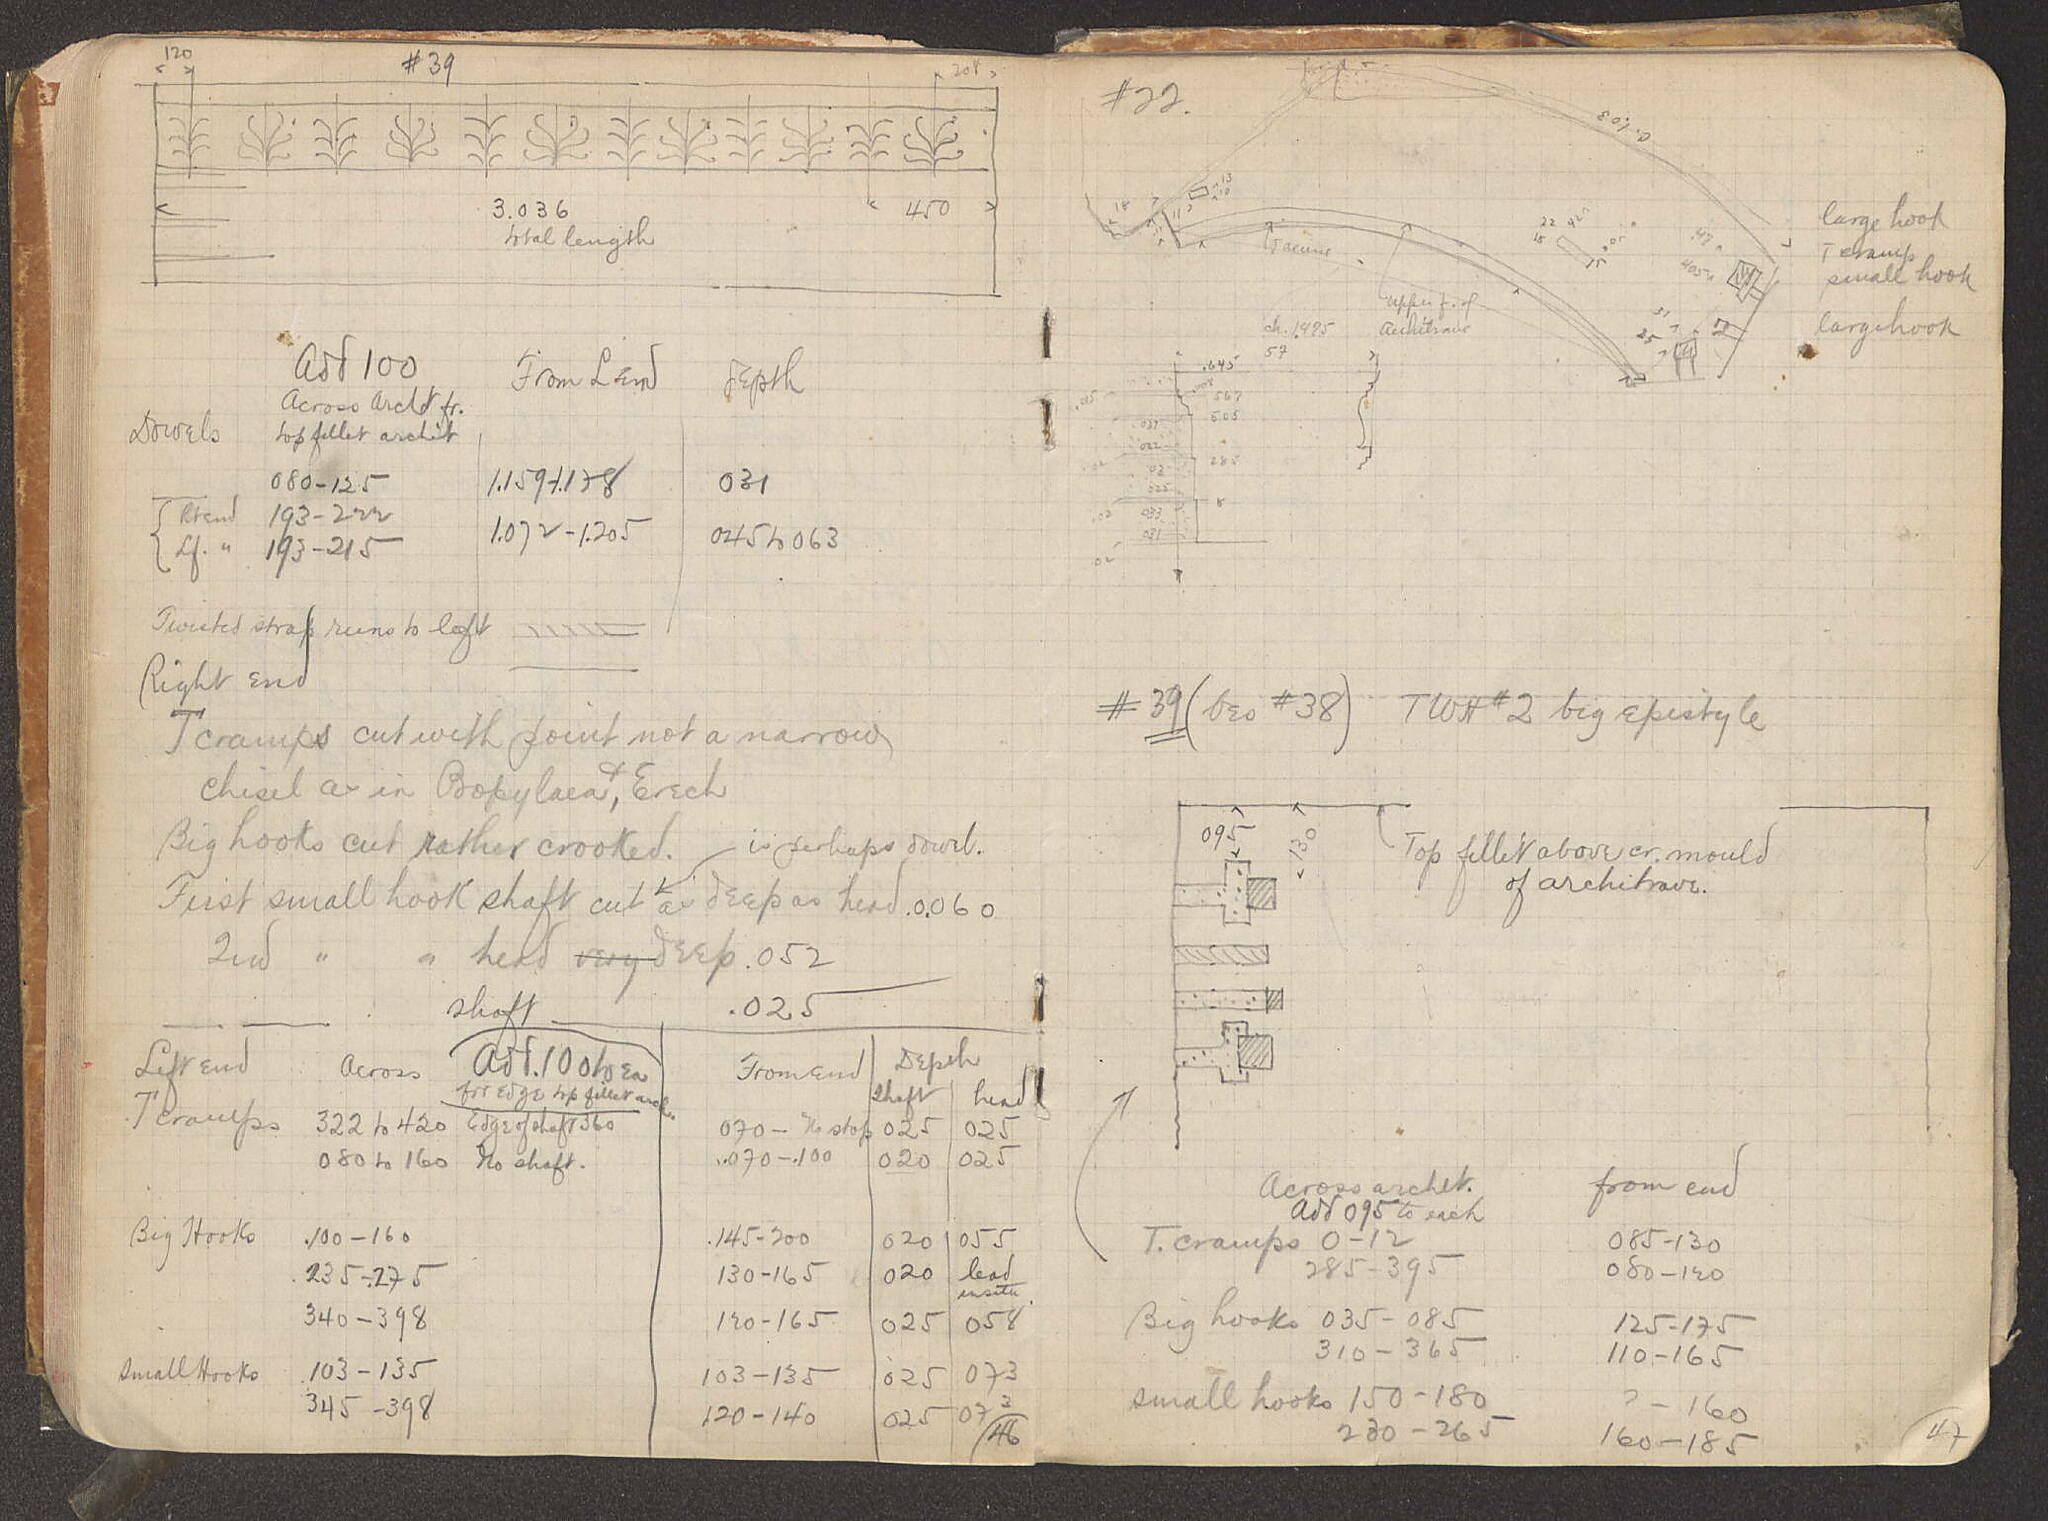 120
#39
208
3.036
total length
450
Add 100
Across Archt fr.
top fillet archit
From L End
depth
Dowels
080-125
1.159-1.178
031
Rt end 193-222
Lf. " 193-215
1.072-1.205
045 to 063
Twisted strap runs to left
Right end
T cramps cut with point not a narrow
chisel as in Propylaea, & Erech
Big hooks cut rather crooked.
is perhaps dowel.
First small hook shaft cut as deep as head .0.060
2nd " " head very deep .052
shaft .025
Left end
Across
Add .100 to ea
for edge top fillet arch.
From End
Depth
Shaft
head
T cramps
322 to 420 Edge of shaft 360 070- No stop 025 025
080 to 160 No shaft. .070-.100 020 025
Big Hooks .100-160 .145-200 020 055
.235-.275 130-165 020 lead
in situ
340-398 120-165 025 058
Small Hooks .103-135 103-135 025 073
345-398 120-140 025 072
46
#22.
C. 1.03
13
10
18
11
22
18
15
47
31
25
large hook
T cramp
small hook
large hook
upper f. of
architrave
ch. 1.495
57
.645
567
505
285
027
022
03
025
033
031
02
#39 (bes #38) TWH #2 big epistyle
095
130
Top fillet above cr. mould
of architrave.
Across archit.
Add 095 to each
from end
T. cramps 0-12 085-130
285-395 080-120
Big hooks 035-085 125-175
310-365 110-165
small hooks 150-180 ?-160
230-265 160-185
47